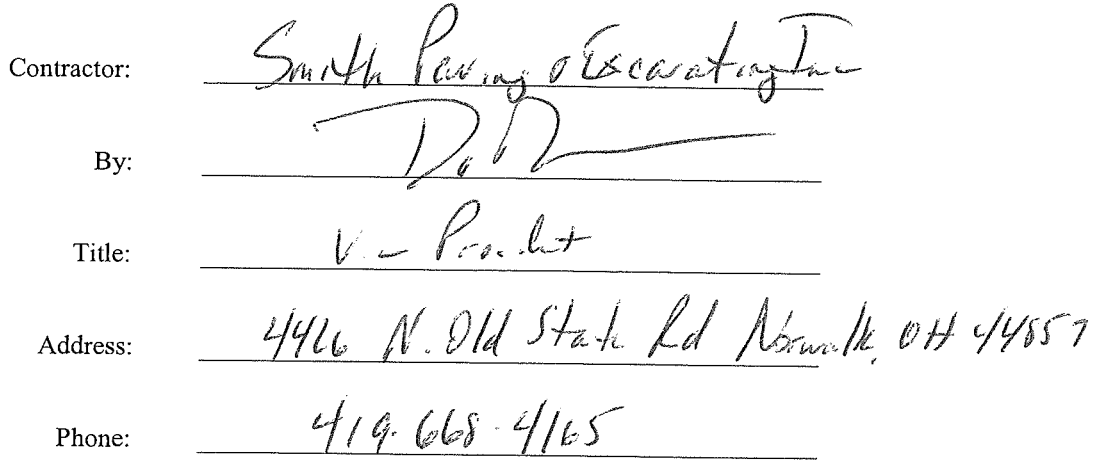 Contractor: Smith Paving & Excavating Inc
By:
Title: Vice President
Address: 4426 N. Old State Rd Norwalk, OH 44857
Phone: 419-668-4165